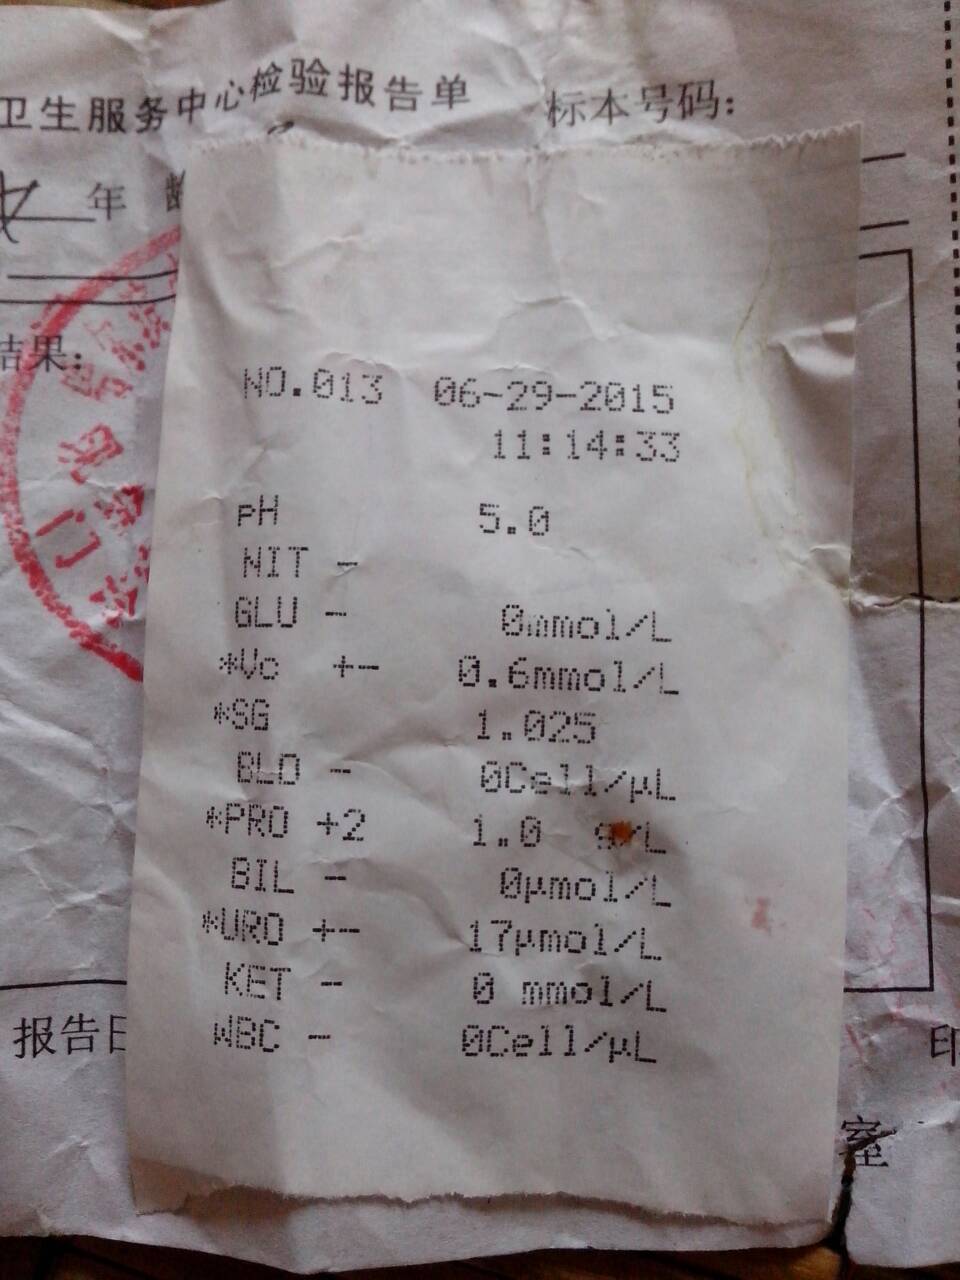 卫生服务中心检验报告单 标本号码:
年 龄
结果:
NO.013 06-29-2015
11:14:33
pH 5.0
NIT -
GLU - 0mmol/L
*Vc +- 0.6mmol/L
*SG 1.025
BLO - 0Cell/μL
*PRO +2 1.0 g/L
BIL - 0μmol/L
*URO +- 17μmol/L
KET - 0 mmol/L
WBC - 0Cell/μL
报告日 印
室